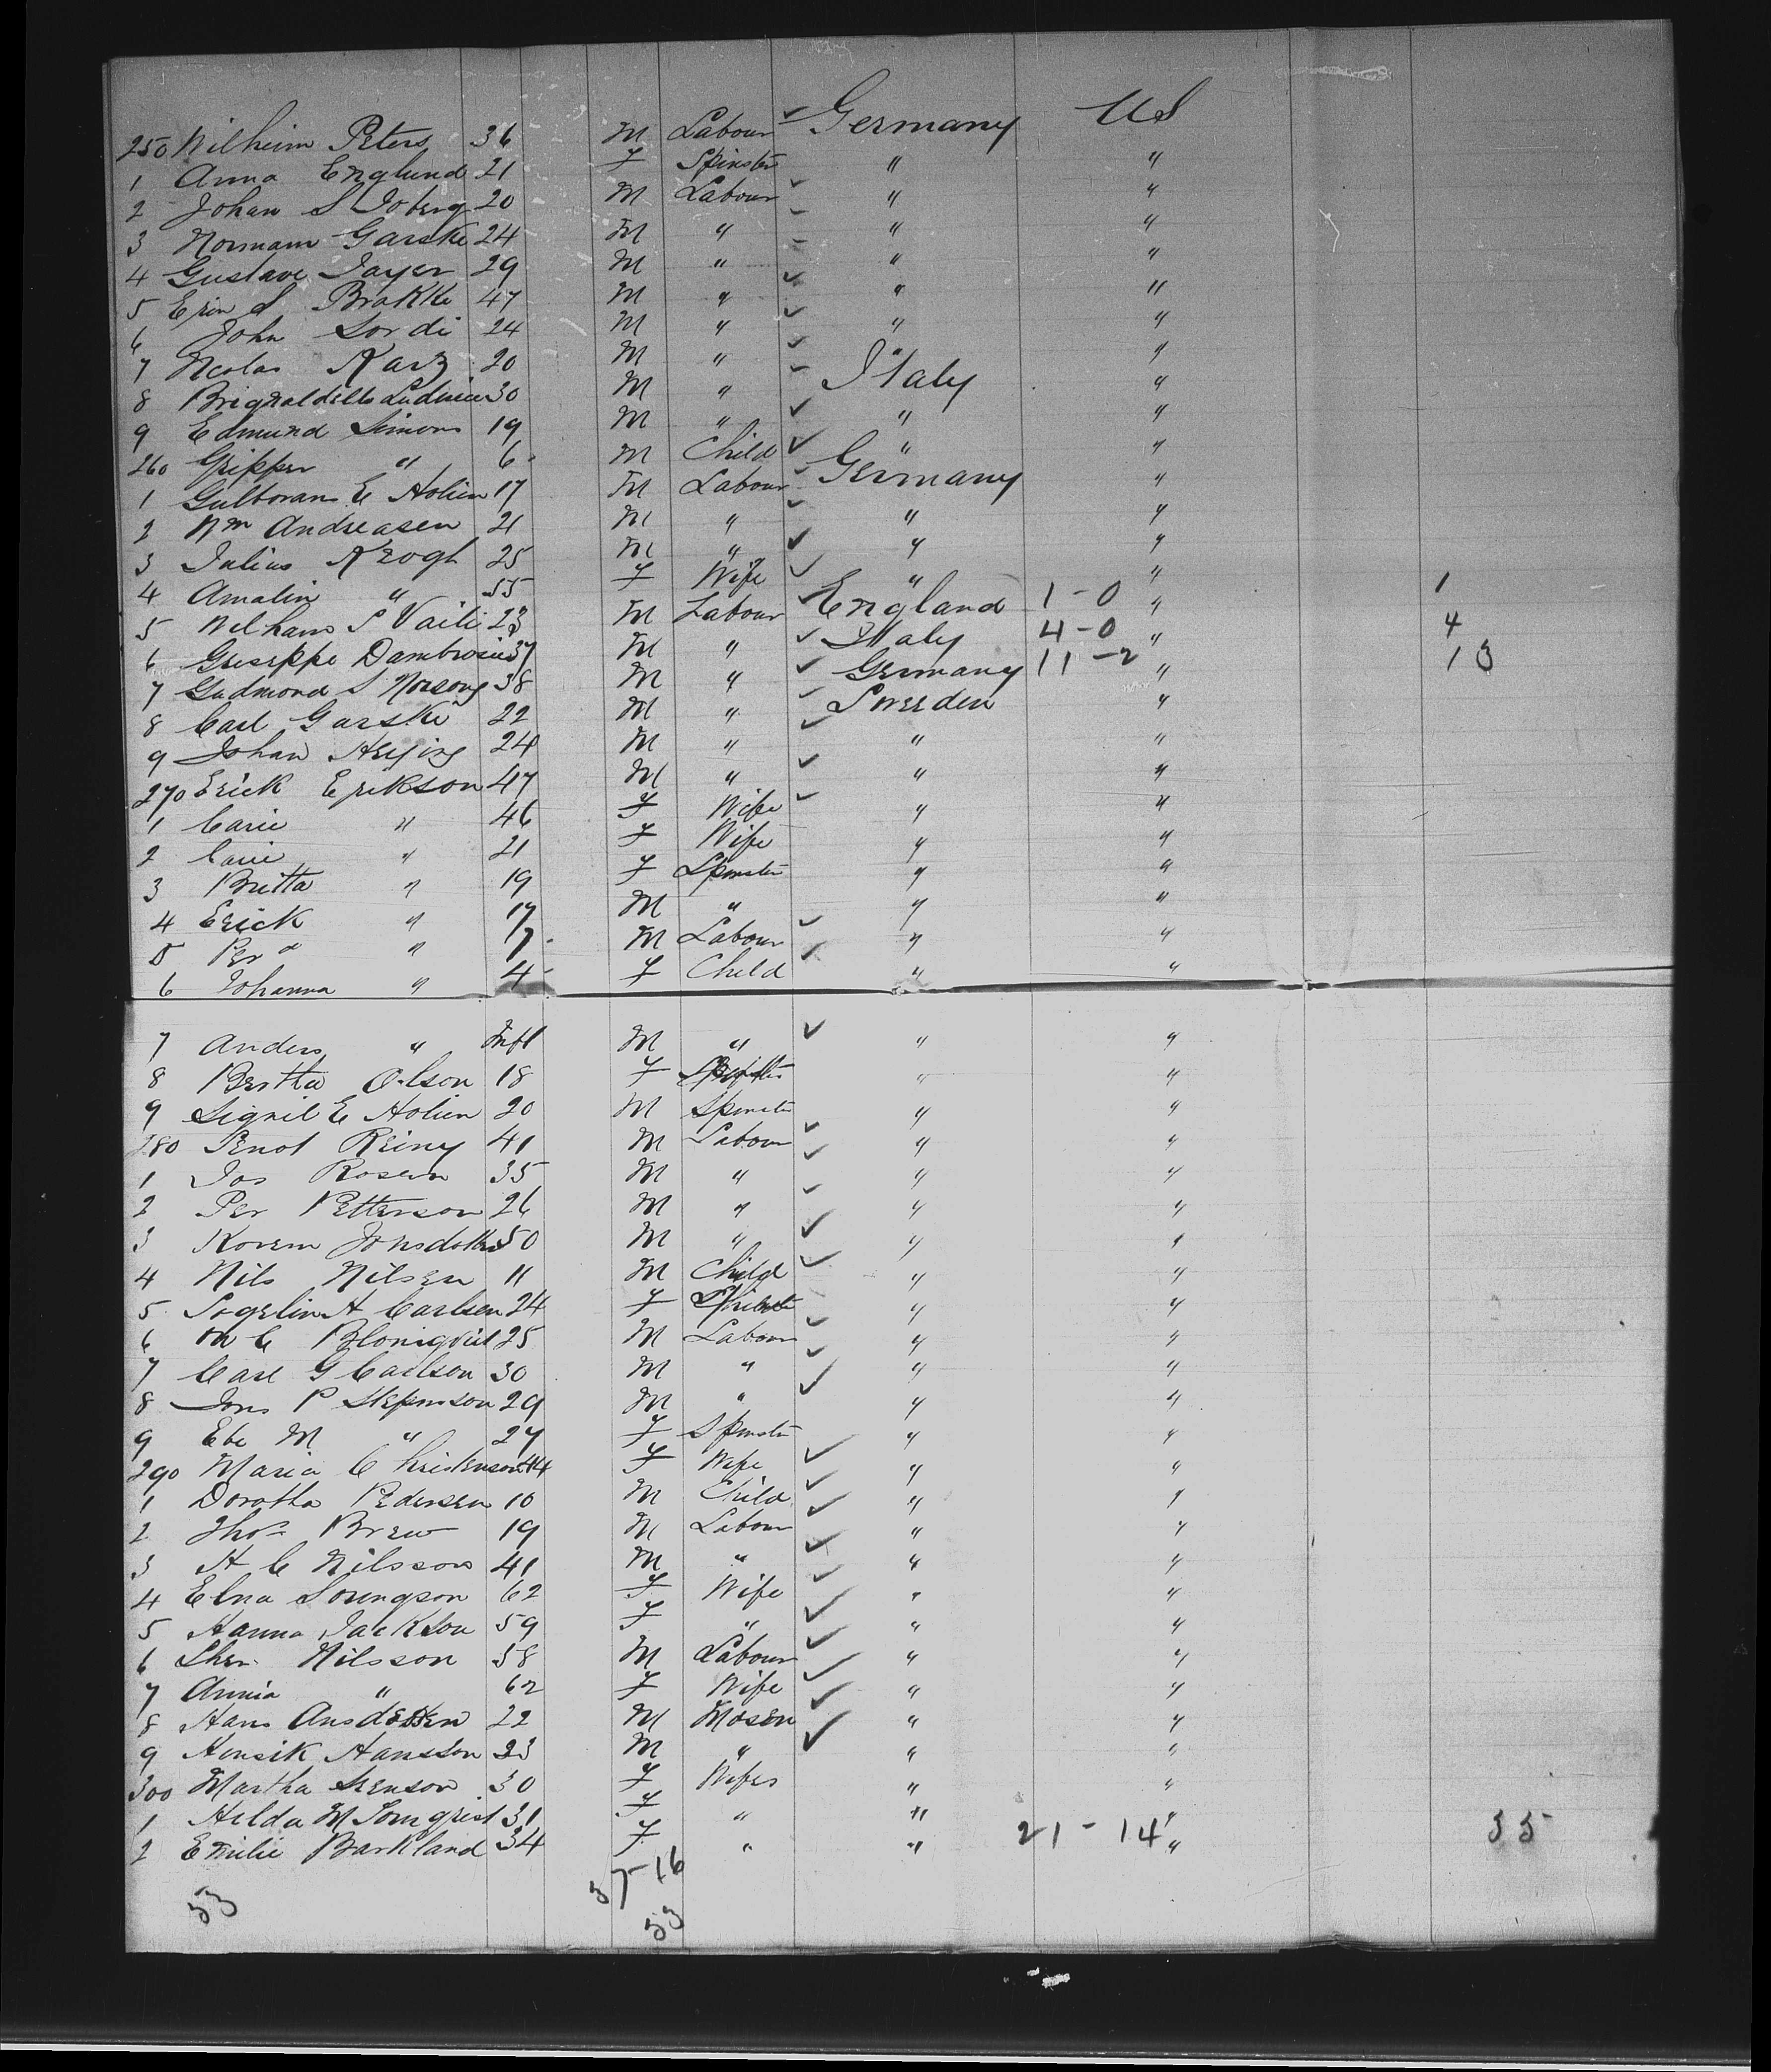 250 Wilheim Peters 36 M Labour ✓ Germany US
1 Anna Englund 21 F Spinster " "
2 Johan S Joberg 20 M Labour ✓ " "
3 Normann Garske 24 M " " "
4 Gustave Jayer 29 M " " "
5 Erin S Brakke 47 M " ✓ " "
6 John Sordi 24 M " ✓ " "
7 Nicolas Karz 20 M " ✓ " "
8 Ludwico 30 M " Italy "
9 Edmund Simons 19 M " ✓ " "
260 Gripper " 6 M Child ✓ " "
1 Gulborans E Holien 17 M Labour Germany "
2 Wm Andreasen 21 M " ✓ " "
3 Julius Krogh 25 M " ✓ " "
4 Amalin " 55 F Wife ✓ " " 1
5 Wilham S Vaili 23 M Labour ✓ England 1-0 " 4
6 Guseppe Dambrosie 37 M " ✓ Italy 4-0 " 13
7 Gudmond S Norsong 38 M " ✓ Germany 11-2 "
8 Carl Garske 22 M " ✓ Sweeden "
9 Johan 24 M " ✓ " "
270 Erick Erikson 47 M " ✓ " "
1 Carie " 46 F Wife ✓ " "
2 Carie " 21 F Wife " "
3 Britta " 19 F Spinster " "
4 Erick " 17 M " " "
5 Per " 7 M Labour ✓ " "
6 Johanna " 4 F Child ✓ " "
7 Anders " Inft M " ✓ " "
8 Britta Olson 18 F " "
9 Signil E Holien 20 M Spinster " "
280 Penot Reiny 41 M Labour ✓ " "
1 Jos Rosern 35 M " ✓ " "
2 Per Petterson 26 M " ✓ " "
3 Korem Jonsdotter 50 M " ✓ " "
4 Nils Nilsen 11 M Child ✓ " "
5 H Carlsen 24 F " "
6 C Blomqvist 25 M Labour ✓ " "
7 Carl G Carlson 30 M " ✓ " "
8 Jons P Stepenson 29 M " ✓ " "
9 Ebe M " 27 F Spinster " "
290 Maria Christenson 44 F Wife ✓ " "
1 Dorotha Pedersen 10 M Child ✓ " "
2 Thos Brew 19 M Labour ✓ " "
3 H C Nilsson 41 M " ✓ " "
4 Elna Soungson 62 F Wife ✓ " "
5 Hanna Jackson 59 F " ✓ " "
6 Nilsson 58 M Labour ✓ " "
7 Annia " 62 F Wife ✓ " "
8 Hans 22 M Mosen ✓ " "
9 Hensik Hansson 23 M " ✓ " "
300 Martha Stenson 30 F Wifes " "
1 Hilda M 31 F " " "
2 Emilie Barkland 34 F " " 21-14 " 35
37-16
53 53